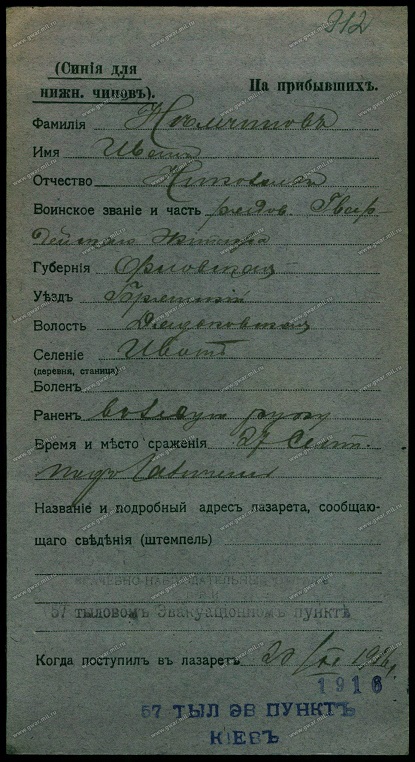 912
(Синія для
нижн. чиновъ).
На прибывшихъ.
Фамилія
Имя Иванъ
Отчество
Воинское званіе и часть рядов. Гвар-
дейскаго
Губернія Орловская
Уѣздъ Брянскій
Волость
Селеніе Ивотъ
(деревня, станица)
Боленъ
Раненъ въ лѣвую руку
Время и мѣсто сраженія 27 Сент.
подъ
Названіе и подробный адресъ лазарета, сообщаю-
щаго свѣдѣнія (штемпель)
ВРАЧЕБНО-НАБЛЮДАТЕЛЬНЫЙ
ПРИ
57 ТЫЛОВОМЪ ЭВАКУАЦІОННОМЪ ПУНКТѢ
Когда поступилъ въ лазаретъ 1916 г.
1916
57 ТЫЛ ЭВ ПУНКТЪ
КІЕВЪ
www.gwar.mil.ru